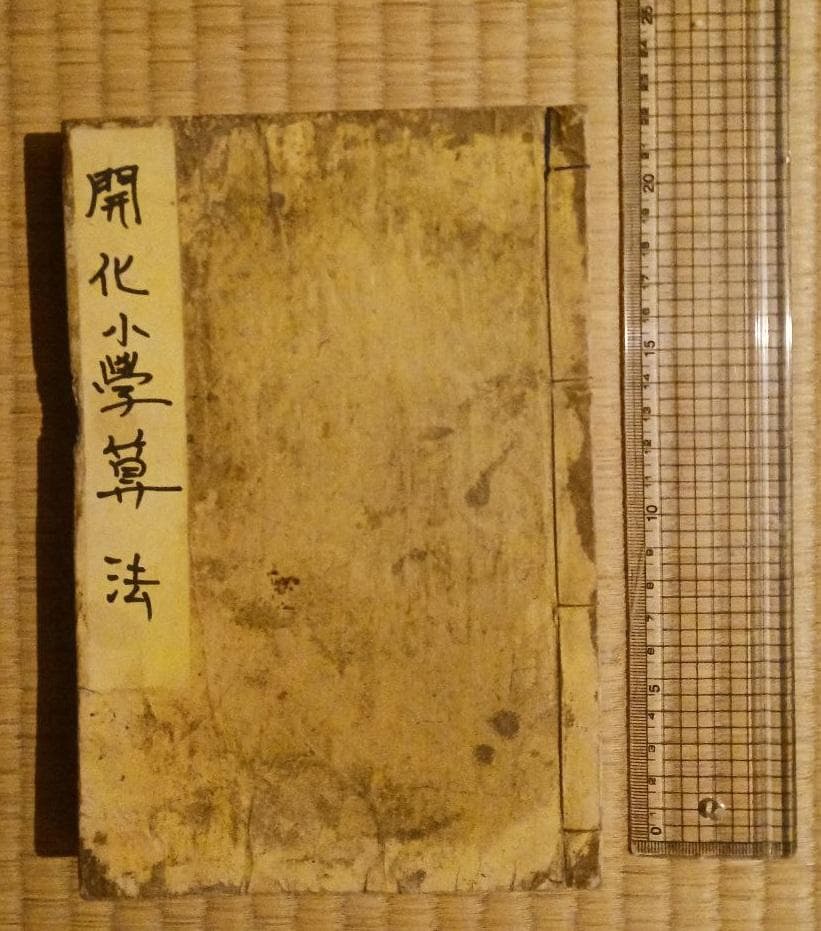 開化小學算法
26
24
23
22
21
20
19
18
17
16
15
14
13
12
11
10
9
8
7
6
5
4
3
2
1
0